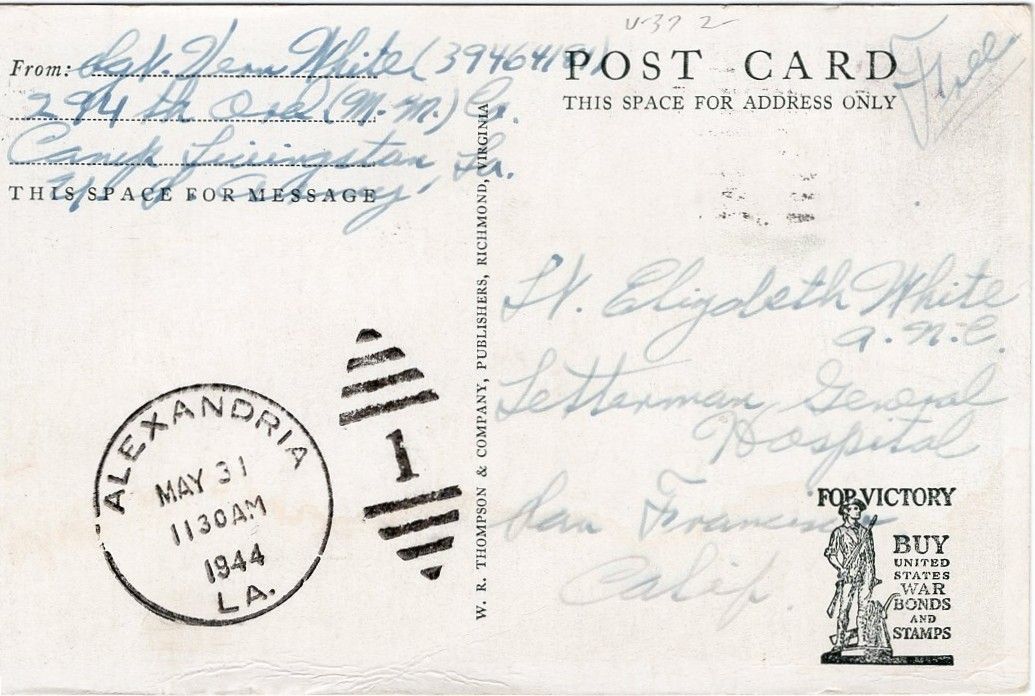 U-37 2
From: Sgt. Vern White (39464181)
294th Ord (M.M.) Co.
Camp Livingston, La.
THIS SPACE FOR MESSAGE
U.S. Army
POST CARD
THIS SPACE FOR ADDRESS ONLY
Free
W. R. THOMPSON & COMPANY, PUBLISHERS, RICHMOND, VIRGINIA
Lt. Elizabeth White
A.N.C.
Letterman General
Hospital
San Francisco
Calif.
ALEXANDRIA
MAY 31
1130 AM
1944
LA.
1
FOR VICTORY
BUY
UNITED
STATES
WAR
BONDS
AND
STAMPS